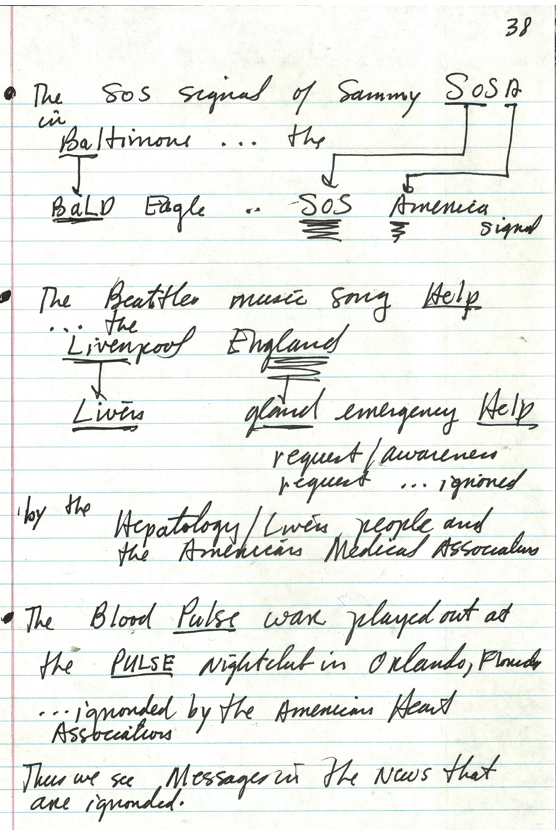 38
The SOS signal of Sammy SOSA
in
Baltimore ... the
BaLD Eagle .. SOS America
signal
The Beattles music song Help
... the
Liverpool England
Livers gland emergency Help
request/awareness
request ... ignored
by the
Hepatology/Livers people and
the American Medical Association
The Blood Pulse wave played out at
the PULSE Nightclub in Orlando, Florida
...ignorded by the American Heart
Association
Thus we see Messages in the News that
are ignorded.